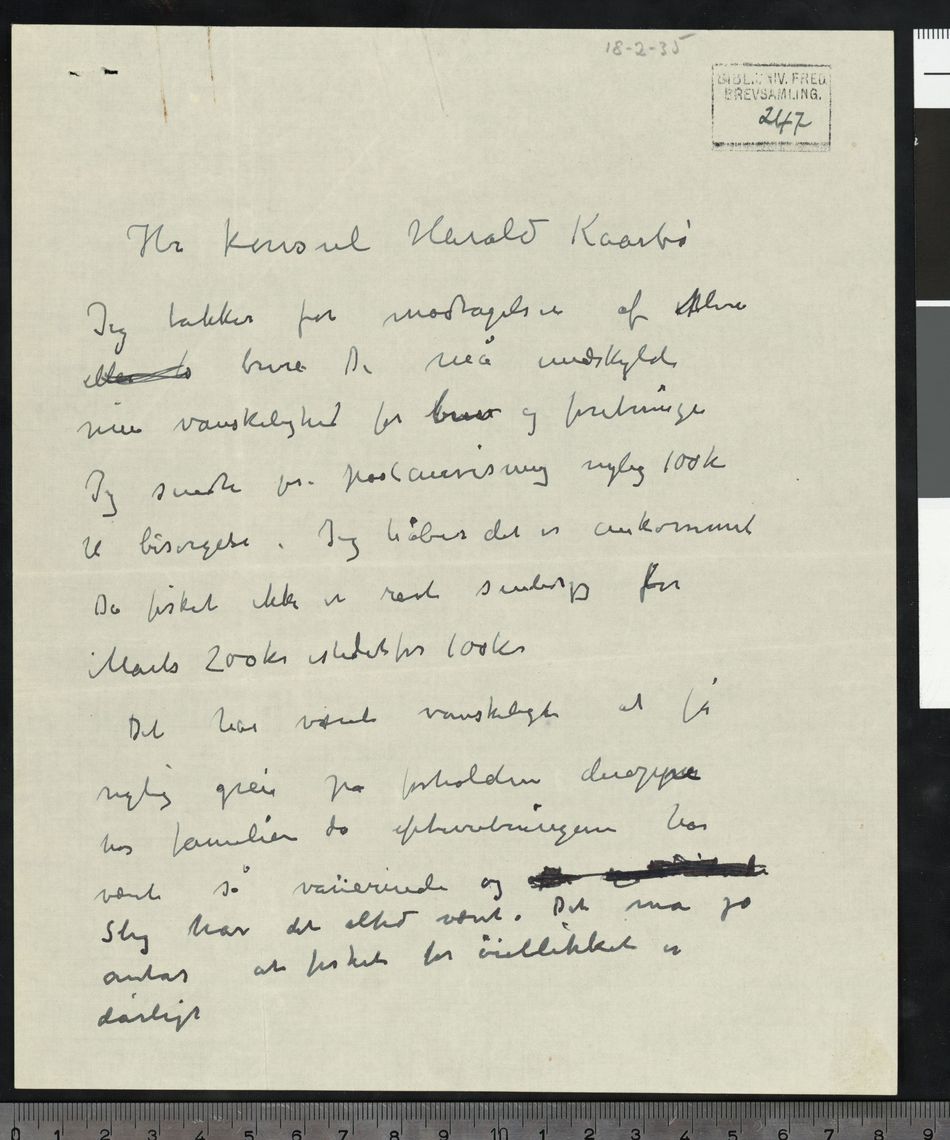 18-2-35
BIBL. UNIV. FRED.
BREVSAMLING.
247
Hr Konsul Harald Kaarbø
Jeg takker for modtagelsen af flere
eller to breve De må undskylde
min vanskelighed for brev og foretninger
Jeg sendte pr. postanvisning nylig 100k
til besørgelse. Jeg håber det er ankommet
Da fisket ikke er rart sender jeg for
Marts 200kr istedetfor 100kr
Det har været vanskeligt at få
nylig greie på forholdene deroppe
hos familien da efteretningerne har
været så varierende og
Slig har det altid været. Det må jo
antas at fisket for øieblikket er
dårligt
0 1 2 3 4 5 6 7 8 9 10 1 2 3 4 5 6 7 8 9